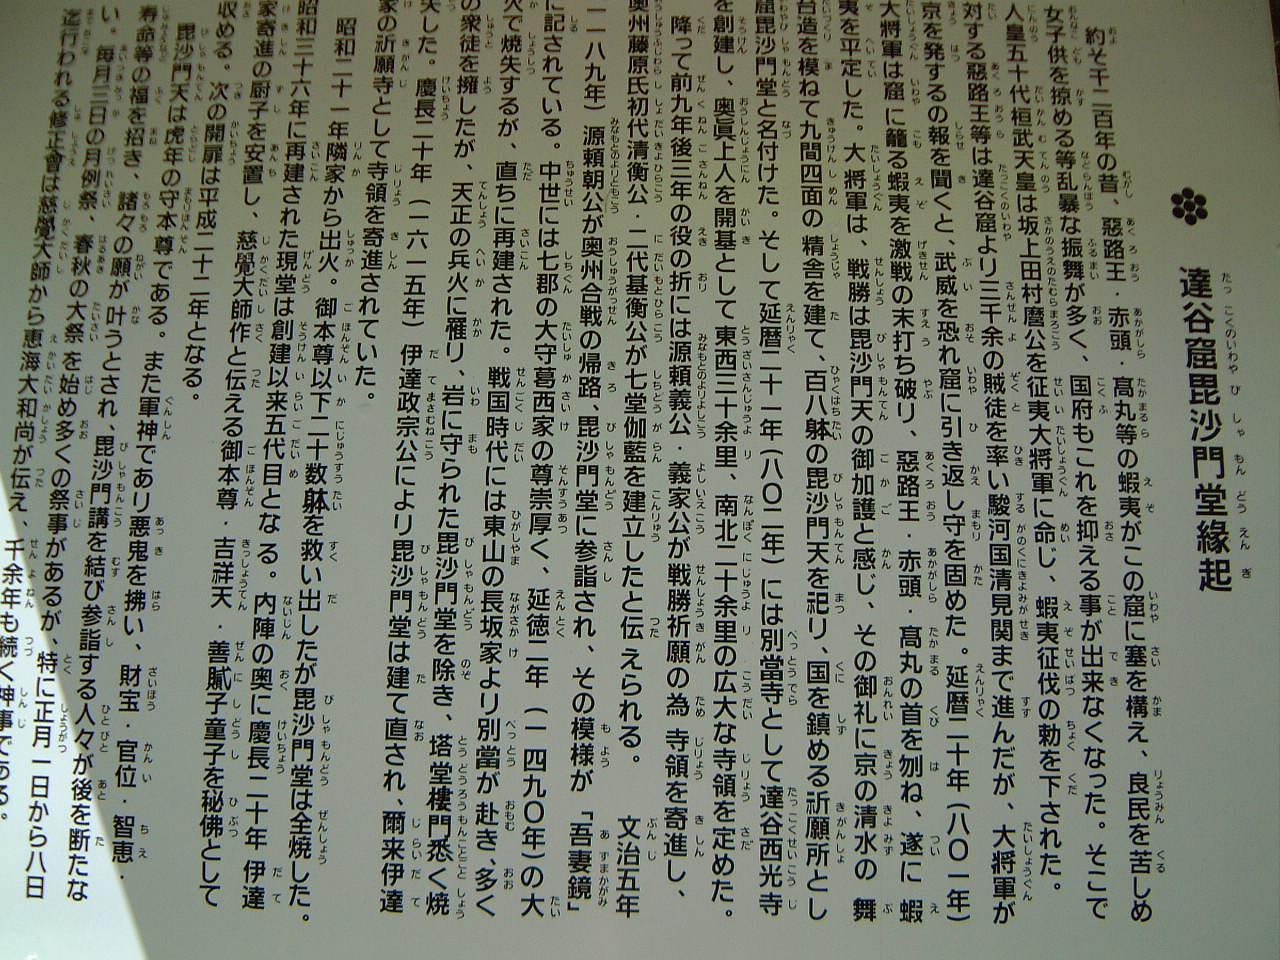 達谷窟毘沙門堂縁起
約そ千二百年の昔、惡路王・赤頭・髙丸等の蝦夷がこの窟に塞を構え、良民を苦しめ
女子供を掠める等乱暴な振舞が多く、国府もこれを抑える事が出来なくなった。そこで
人皇五十代桓武天皇は坂上田村麿公を征夷大将軍に命じ、蝦夷征伐の勅を下された。
対する惡路王等は達谷窟より三千余の賊徒を率い駿河国清見関まで進んだが、大将軍が
京を発するの報を聞くと、武威を恐れ窟に引き返し守を固めた。延暦二十年（八〇一年）
大将軍は窟に籠る蝦夷を激戦の末打ち破り、惡路王・赤頭・髙丸の首を刎ね、遂に蝦
夷を平定した。大将軍は、戦勝は毘沙門天の御加護と感じ、その御礼に京の清水の舞
台造を模ねて九間四面の精舎を建て、百八躰の毘沙門天を祀り、国を鎮める祈願所とし
窟毘沙門堂と名付けた。そして延暦二十一年（八〇二年）には別當寺として達谷西光寺
を創建し、奥眞上人を開基として東西三十余里、南北二十余里の広大な寺領を定めた。
降って前九年後三年の役の折には源頼義公・義家公が戦勝祈願の為寺領を寄進し、
奥州藤原氏初代清衡公・二代基衡公が七堂伽藍を建立したと伝えられる。文治五年
一一八九年）源頼朝公が奥州合戦の帰路、毘沙門堂に参詣され、その模様が「吾妻鏡」
に記されている。中世には七郡の大守葛西家の尊崇厚く、延徳二年（一四九〇年）の大
火で焼失するが、直ちに再建された。戦国時代には東山の長坂家より別當が赴き、多く
の衆徒を擁したが、天正の兵火に罹り、岩に守られた毘沙門堂を除き、塔堂樓門悉く焼
失した。慶長二十年（一六一五年）伊達政宗公により毘沙門堂は建て直され、爾来伊達
家の祈願寺として寺領を寄進されていた。
昭和二十一年隣家から出火。御本尊以下二十数躰を救い出したが毘沙門堂は全焼した。
昭和三十六年に再建された現堂は創建以来五代目となる。内陣の奥に慶長二十年伊達
家寄進の厨子を安置し、慈覺大師作と伝える御本尊・吉祥天・善膩子童子を秘佛として
収める。次の開扉は平成二十二年となる。
毘沙門天は虎年の守本尊である。また軍神であり悪鬼を拂い、財宝・官位・智恵・
寿命等の福を招き、諸々の願が叶うとされ、毘沙門講を結び参詣する人々が後を断たな
い。毎月三日の月例祭、春秋の大祭を始め多くの祭事があるが、特に正月一日から八日
迄行われる修正會は慈覺大師から恵海大和尚が伝え、千余年も続く神事である。